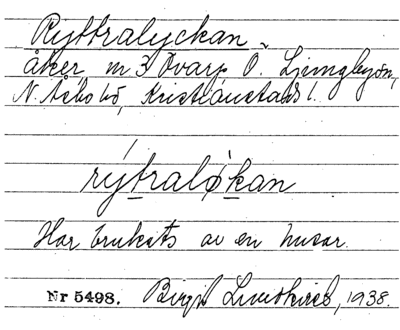 Ryttralyckan
åker, m 3 Ovarp Ö. Ljungbysn,
N. Åsbo hd, Kristianstads l.
rýtralø̀kan
Har brukats av en husar.
Nr 5498. Birgit Lundkvist, 1938.